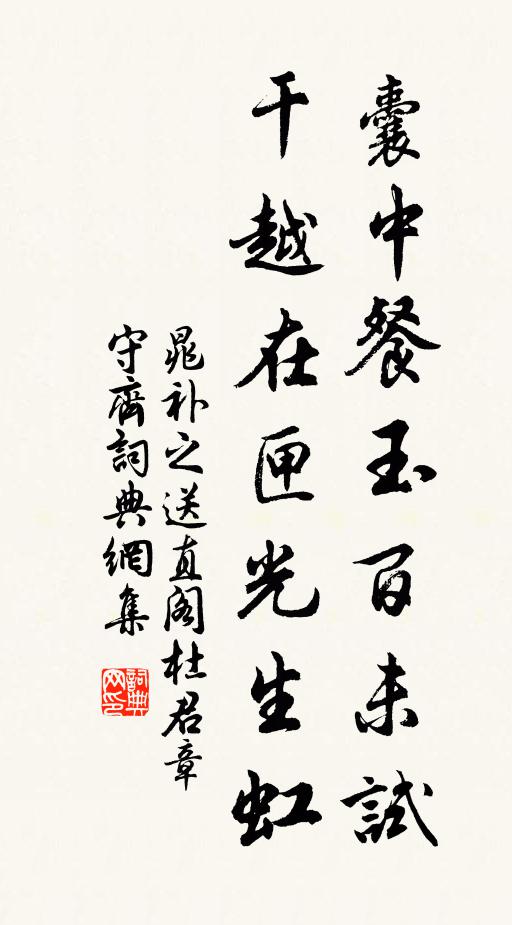 囊中餐玉百未試
干越在匣光生虹
晁补之送直阁杜君章
守齋詞典網集
詞典网印